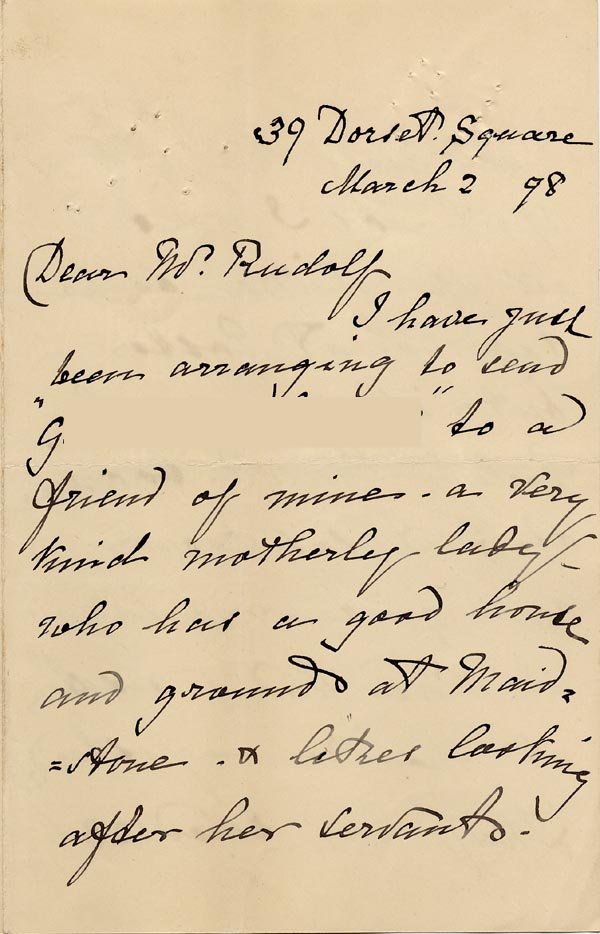 39 Dorset Square
March 2 98
Dear Mr. Rudolf
I have just
been arranging to send
"G. " to a
friend of mine - a very
kind motherly lady -
who has a good house
and grounds at Maid=
=stone - & likes looking
after her servants.